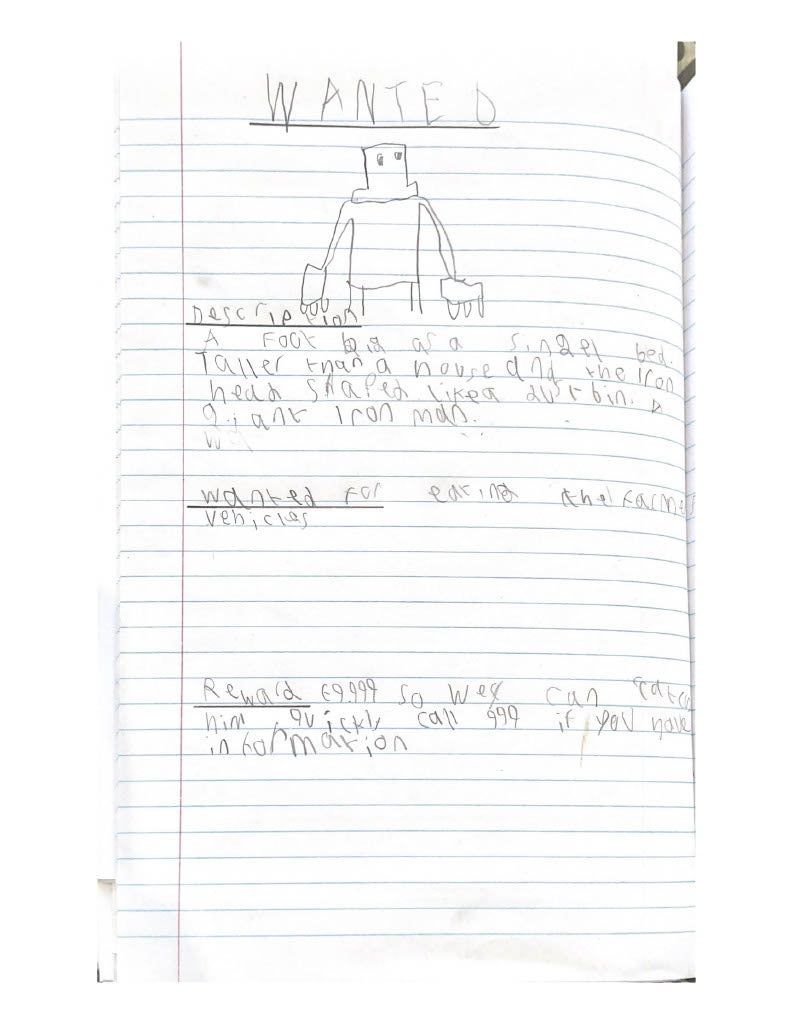 WANTED
Description
A Foot big as a singel bed.
Taller than a house and the Iron
head shaped like a dustbin. A
giant Iron man.
wanted for eating the farmer
vehicles
Reward £9.999 so we can catch
him quickly call 999 if you have
information